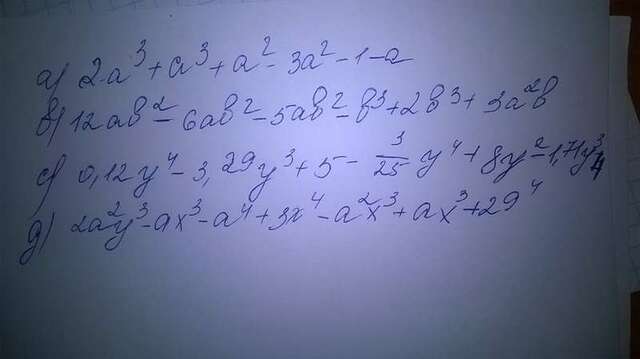 а) 2a³ + a³ + a² - 3a² - 1 - a
в) 12ab² - 6ab² - 5ab² - b³ + 2b³ + 3a²b
с) 0,12y⁴ - 3,29y³ + 5 - 3/25 y⁴ + 8y² - 1,71y³
д) 2a²y³ - ax³ - a⁴ + 3x⁴ - a²x³ + ax³ + 2a⁴